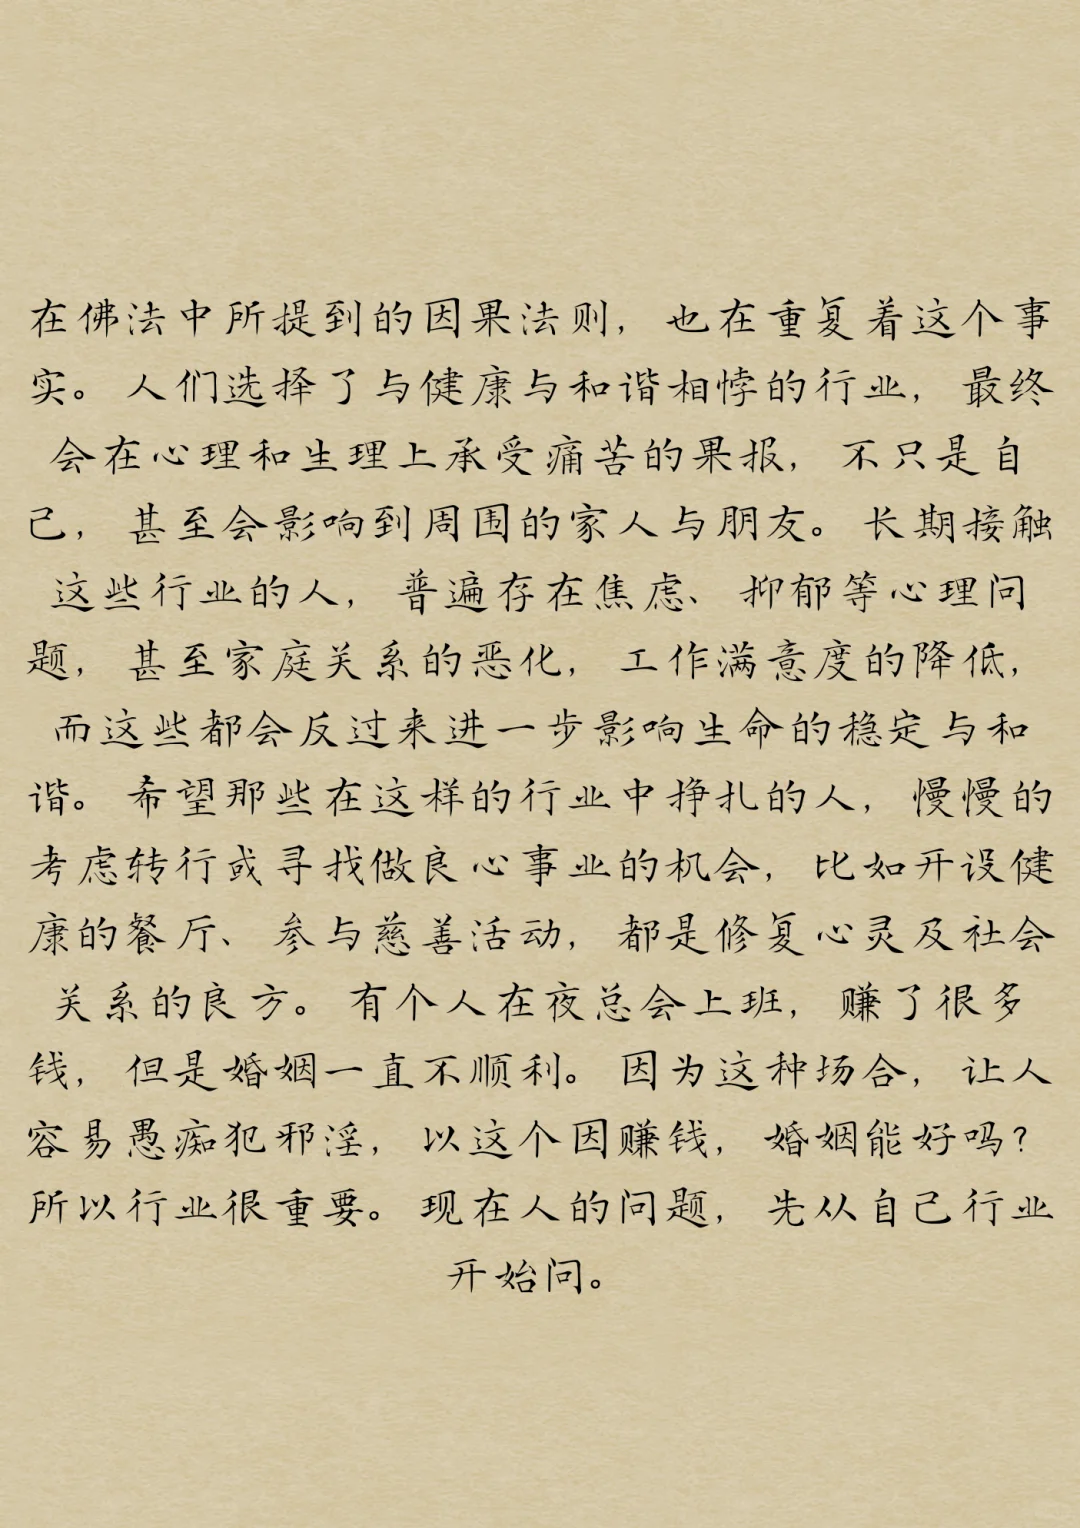 在佛法中所提到的因果法则，也在重复着这个事
实。人们选择了与健康与和谐相悖的行业，最终
会在心理和生理上承受痛苦的果报，不只是自
己，甚至会影响到周围的家人与朋友。长期接触
这些行业的人，普遍存在焦虑、抑郁等心理问
题，甚至家庭关系的恶化，工作满意度的降低，
而这些都会反过来进一步影响生命的稳定与和
谐。希望那些在这样的行业中挣扎的人，慢慢的
考虑转行或寻找做良心事业的机会，比如开设健
康的餐厅、参与慈善活动，都是修复心灵及社会
关系的良方。有个人在夜总会上班，赚了很多
钱，但是婚姻一直不顺利。因为这种场合，让人
容易愚痴犯邪淫，以这个因赚钱，婚姻能好吗？
所以行业很重要。现在人的问题，先从自己行业
开始问。